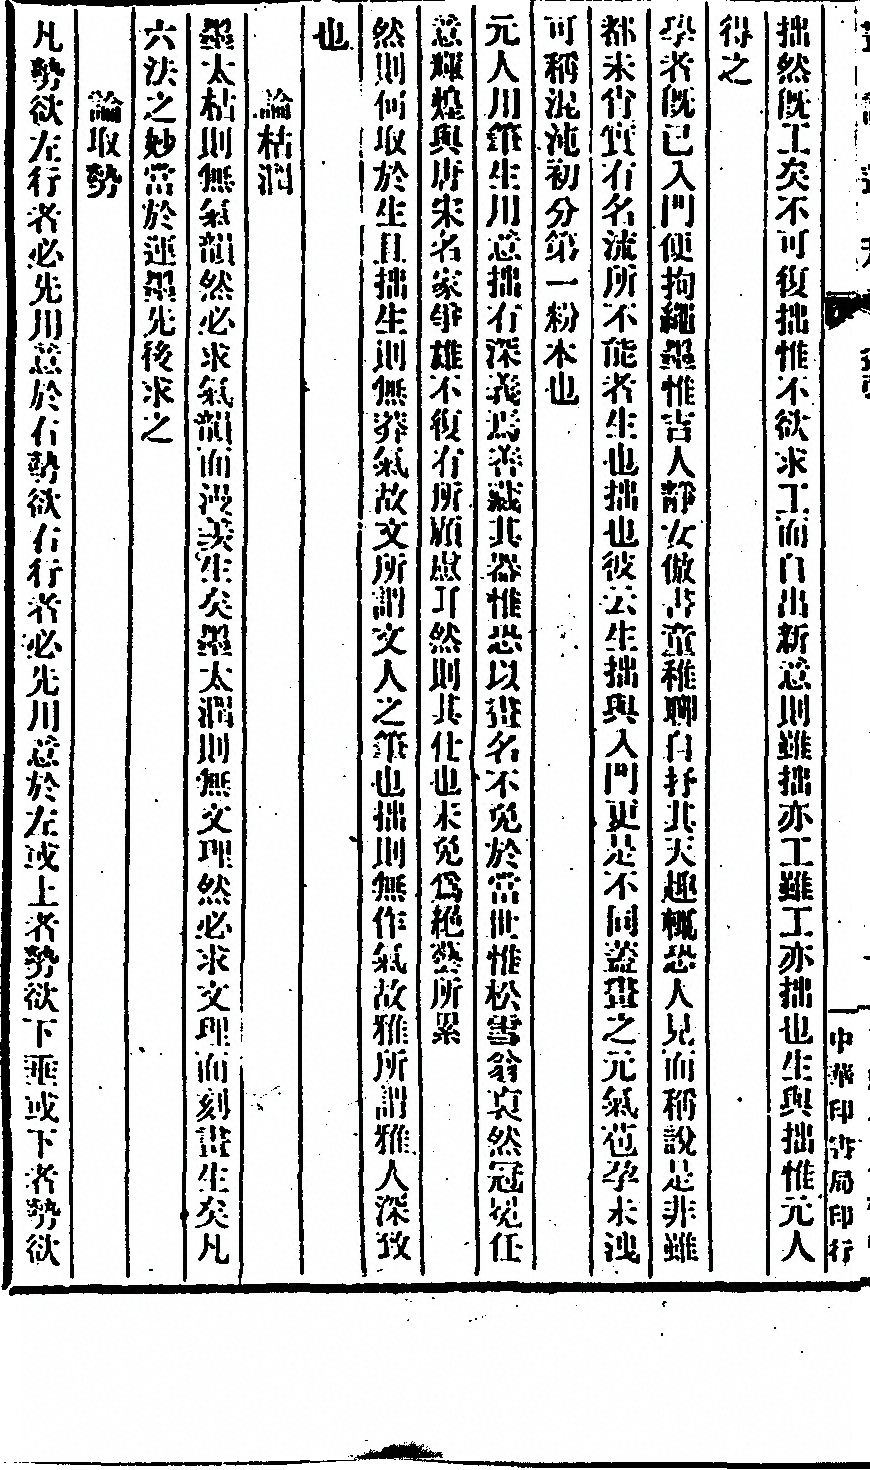 拙然既工矣不可復拙惟不欲求工而自出新意則雖拙亦工雖工亦拙也生與拙惟元人
得之
學者既已入門便拘繩墨惟吉人靜女倣書童稚聊自抒其天趣輒恐人見而稱說是非雖
都未肖實有名流所不能者生也拙也彼云生拙與入門更是不同蓋畫之元氣苞孕未洩
可稱混沌初分第一粉本也
元人用筆生用意拙有深義焉善藏其器惟恐以畫名不免於當世惟松雪翁裒然冠冕任
意輝煌與唐宋名家爭雄不復有所顧慮耳然則其仕也未免為絕藝所累
然則何取於生且拙生則無莽氣故文所謂文人之筆也拙則無作氣故雅所謂雅人深致
也
論枯潤
墨太枯則無氣韻然必求氣韻而漫羨生矣墨太潤則無文理然必求文理而刻畫生矣凡
六法之妙當於運墨先後求之
論取勢
凡勢欲左行者必先用意於右勢欲右行者必先用意於左或上者勢欲下垂或下者勢欲
中華印書局印行